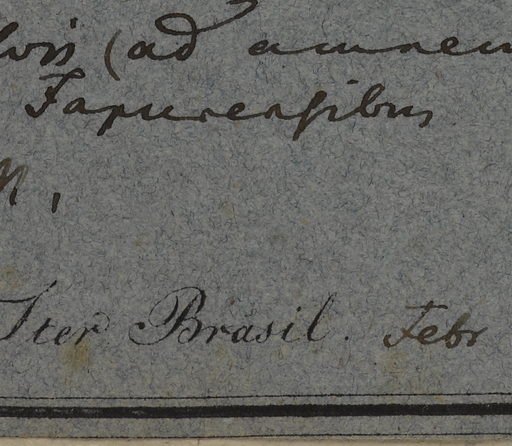 (ad amnem
Japurensibus
Iter Brasil. Febr